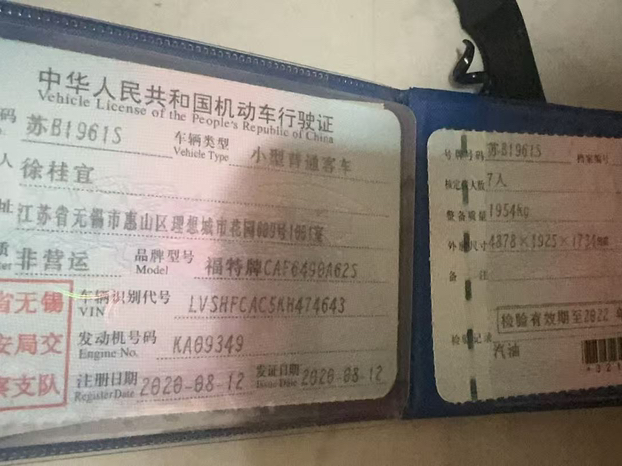 中华人民共和国机动车行驶证
Vehicle License of the People's Republic of China
码 苏B1961S 车辆类型 小型普通客车
Vehicle Type
人 徐桂宜
址 江苏省无锡市惠山区理想城市花园
质 非营运 品牌型号 福特牌CAF6490A62S
Model
车辆识别代号 LVSHFCAC5KH474643
VIN
发动机号码 KA09349
Engine No.
注册日期 2020-08-12 发证日期 2020-08-12
Register Date Issue Date
省无锡
安局交
察支队
号牌号码 苏B1961S 档案编号
核定载人数 7人
整备质量 1954Kg
外廓尺寸
备 注
检验有效期至2022
检验记录
汽油